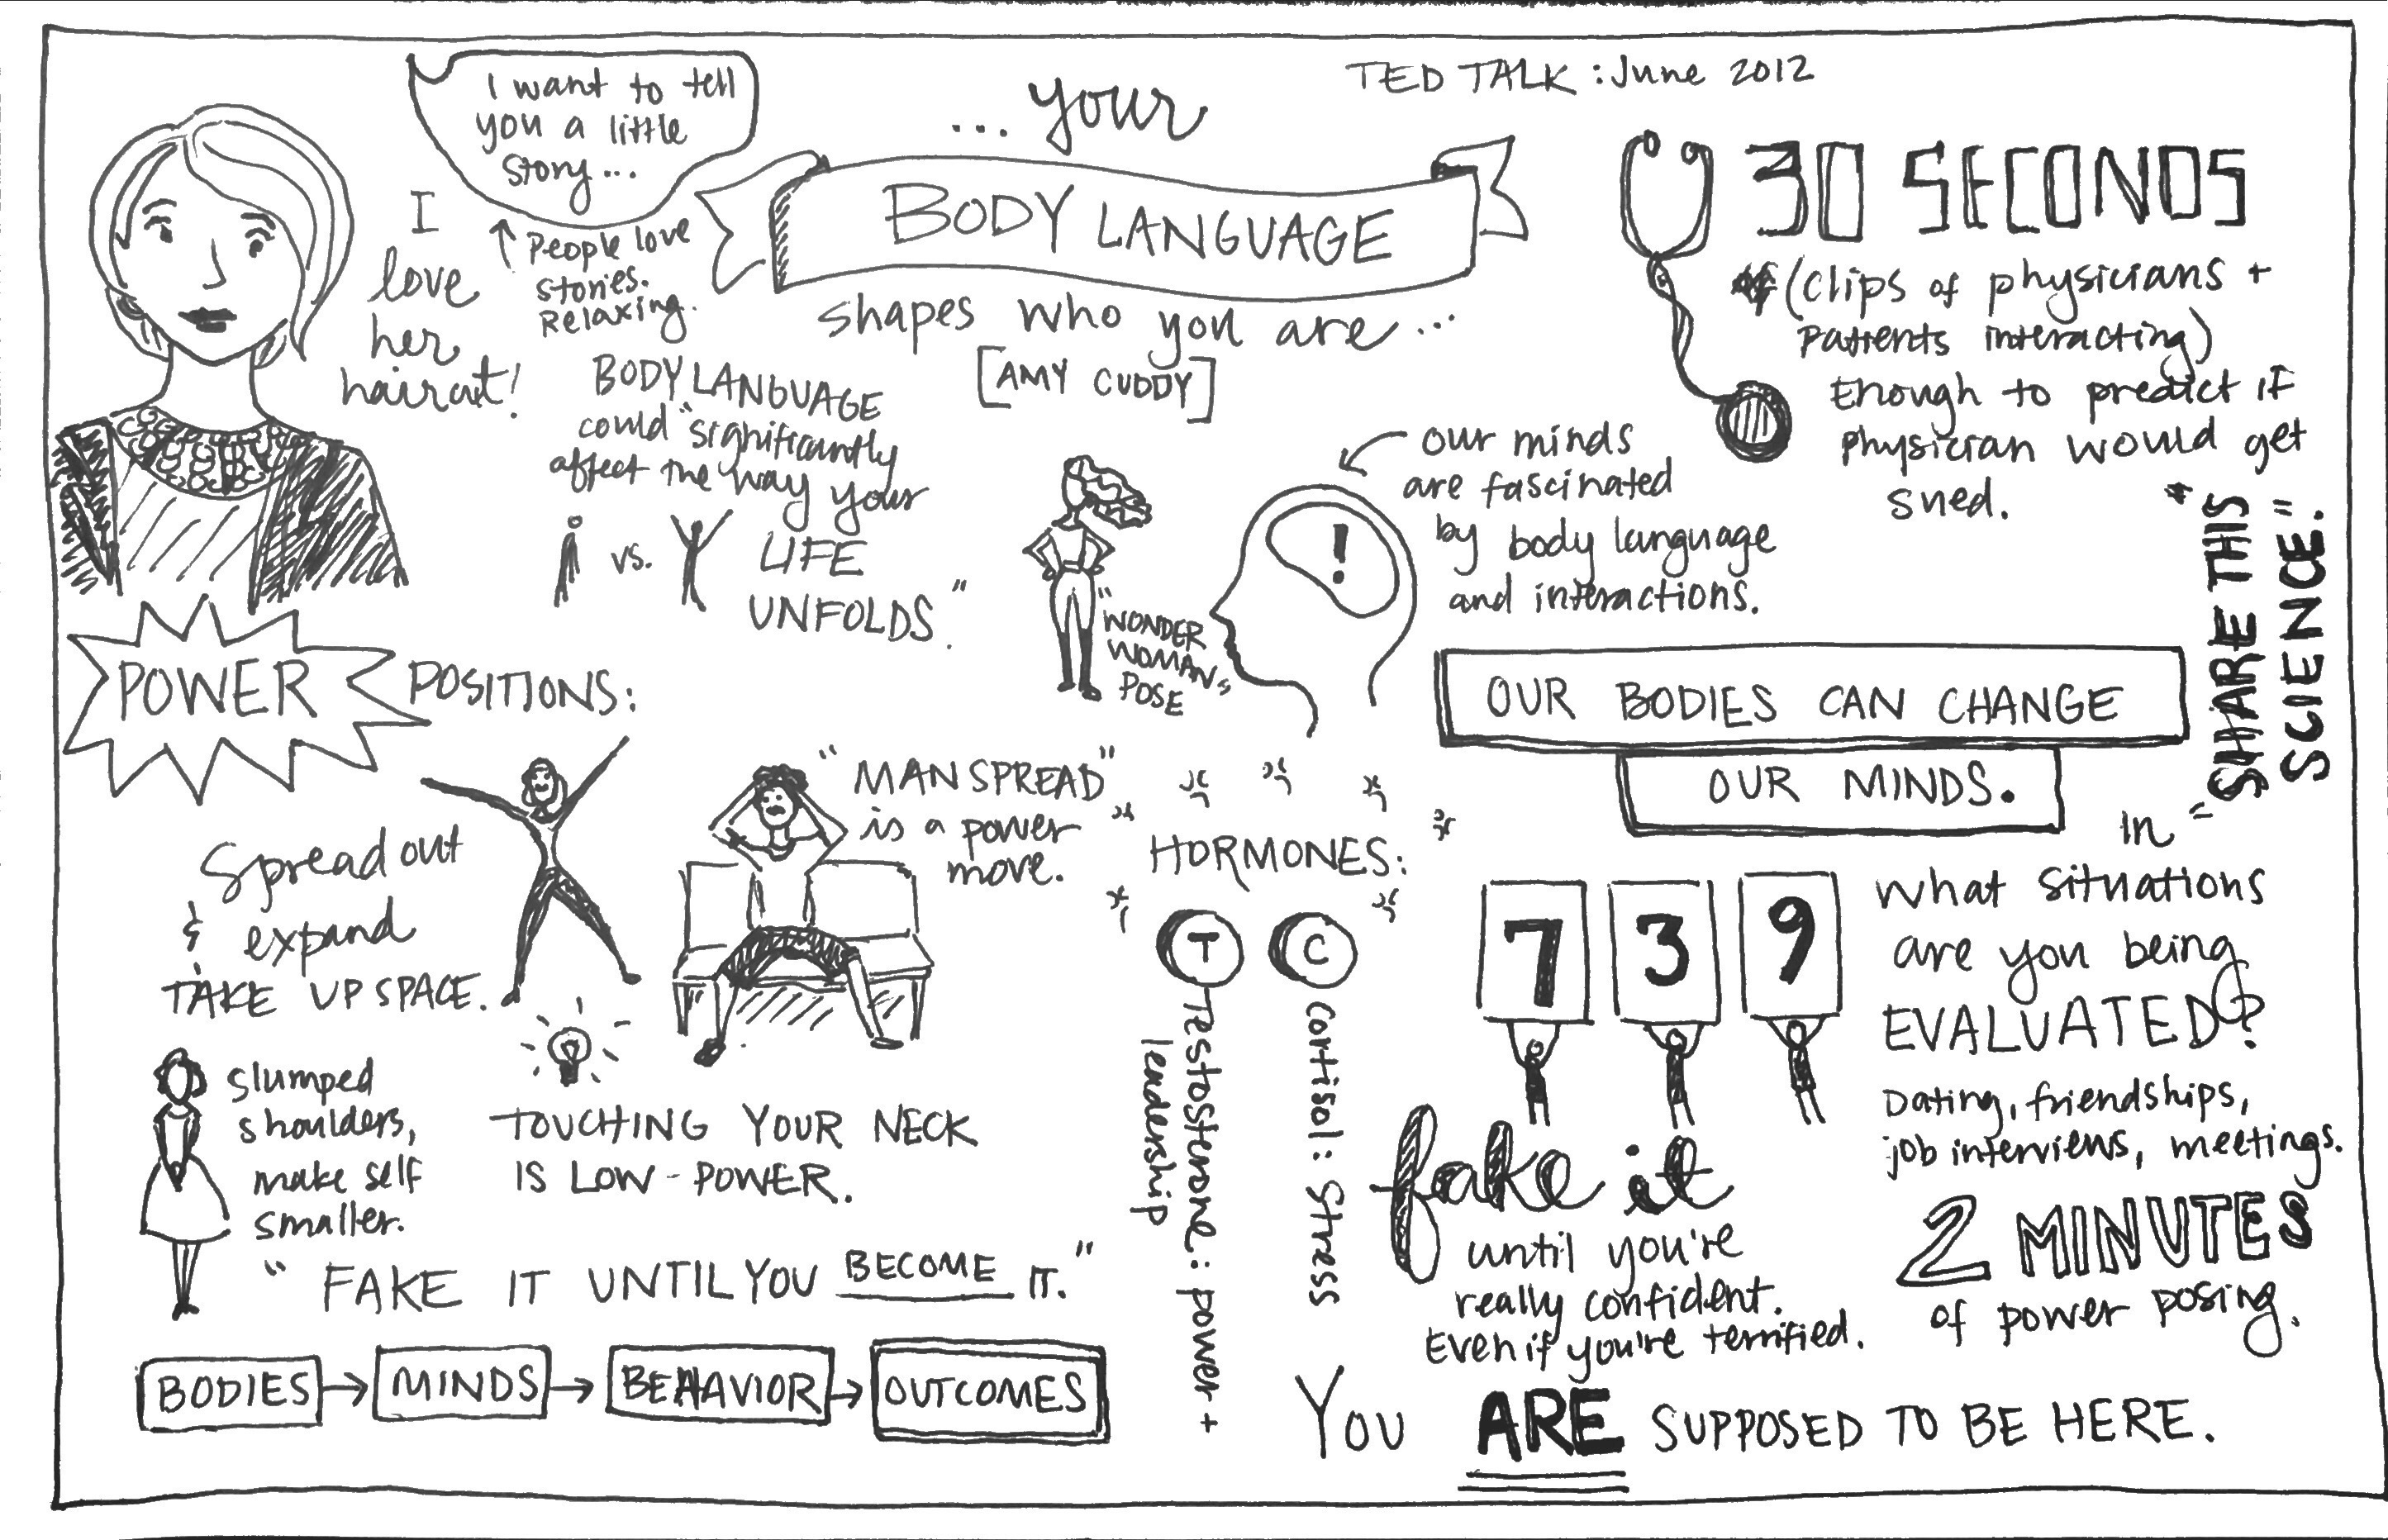 TED TALK : June 2012
I want to tell
you a little
story...
People love
stories.
Relaxing.
I
love
her
haircut!
... your
BODY LANGUAGE
shapes who you are ...
[AMY CUDDY]
BODY LANGUAGE
could "significantly
affect the way your
LIFE
UNFOLDS."
vs.
30 SECONDS
(clips of physicians +
patients interacting)
Enough to predict if
physician would get
sued.
our minds
are fascinated
by body language
and interactions.
!
"WONDER
WOMAN"
POSE
"SHARE THIS
SCIENCE."
OUR BODIES CAN CHANGE
OUR MINDS.
POWER POSITIONS:
Spread out
& expand
TAKE UP SPACE.
"MANSPREAD"
is a power
move.
slumped
shoulders,
make self
smaller.
TOUCHING YOUR NECK
IS LOW-POWER.
"FAKE IT UNTIL YOU BECOME IT."
BODIES → MINDS → BEHAVIOR → OUTCOMES
HORMONES:
T
Testosterone: power +
leadership
C
Cortisol: Stress
7 3 9
In
what situations
are you being
EVALUATED?
Dating, friendships,
job interviews, meetings.
fake it
until you're
really confident.
Even if you're terrified.
2 MINUTES
of power posing.
You ARE SUPPOSED TO BE HERE.